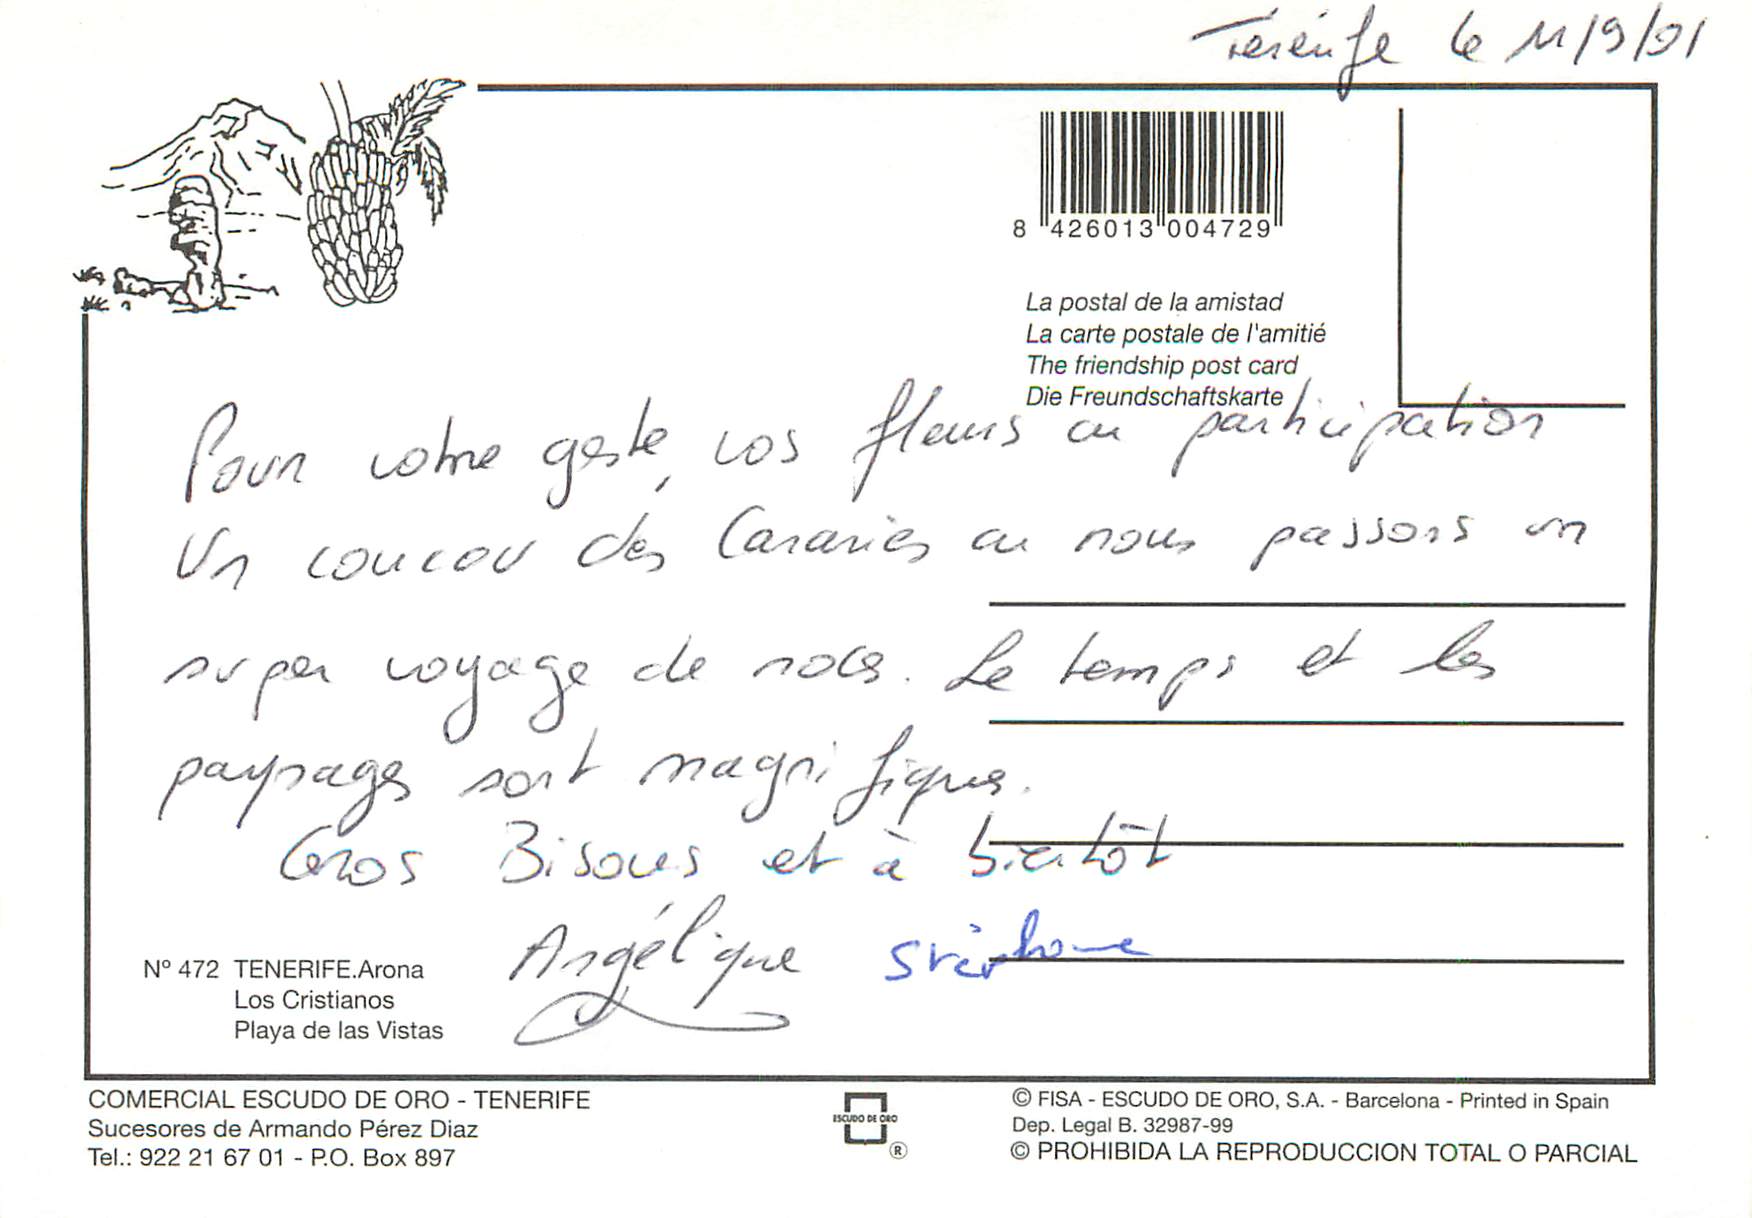 Ténérife le 11/9/01
8 426013 004729
La postal de la amistad
La carte postale de l'amitié
The friendship post card
Die Freundschaftskarte
Pour votre geste, vos fleurs ou participation
Un coucou des Canaries ou nous passons un
super voyage de noces. Le temps et les
paysages sont magnifiques.
Gros Bisous et à bientôt
Angélique Stéphane
Nº 472 TENERIFE.Arona
Los Cristianos
Playa de las Vistas
COMERCIAL ESCUDO DE ORO - TENERIFE
Sucesores de Armando Pérez Diaz
Tel.: 922 21 67 01 - P.O. Box 897
ESCUDO DE ORO
®
© FISA - ESCUDO DE ORO, S.A. - Barcelona - Printed in Spain
Dep. Legal B. 32987-99
© PROHIBIDA LA REPRODUCCION TOTAL O PARCIAL